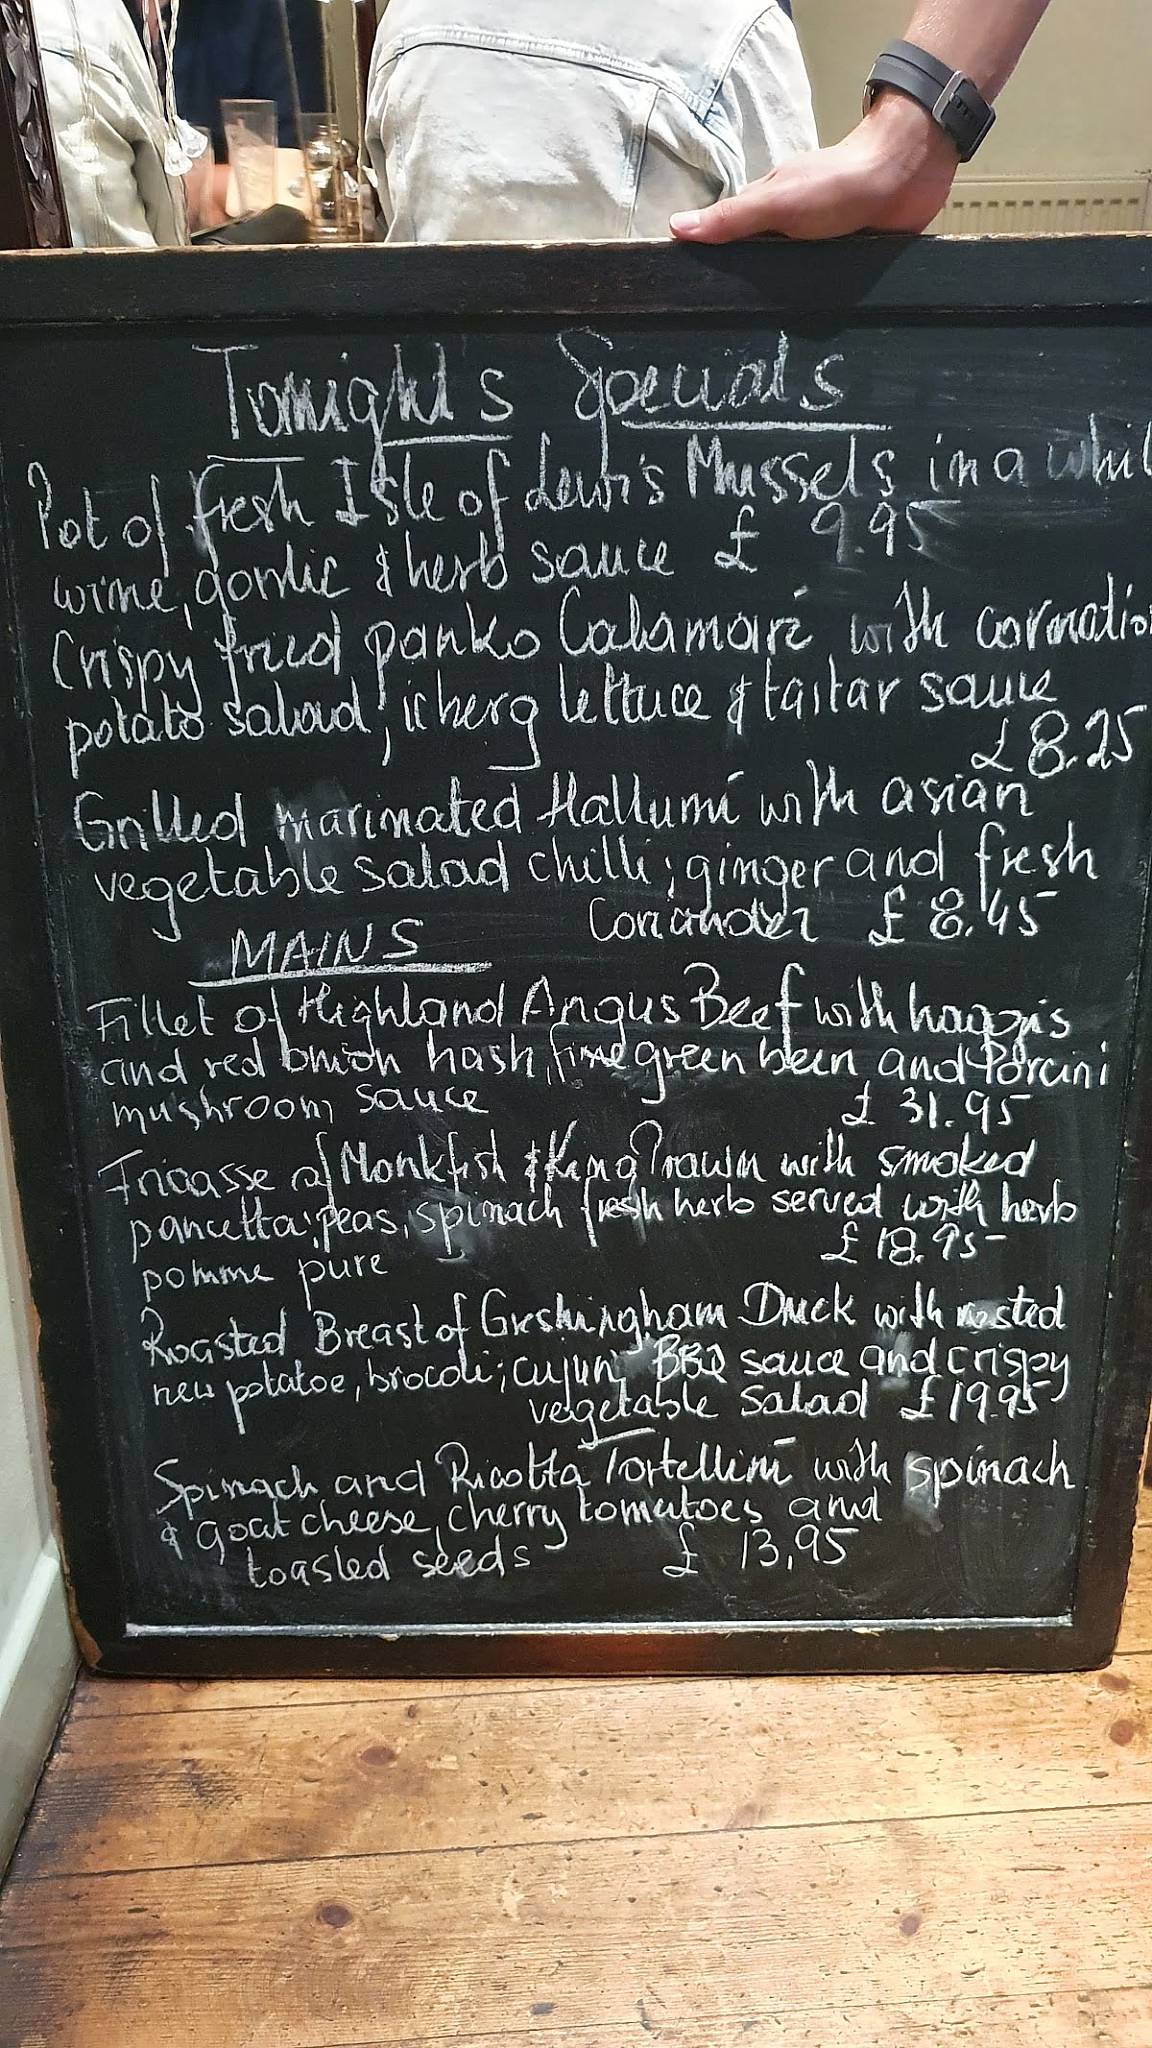 Tonight's Specials
Pot of fresh Isle of Lewis Mussels in a whit
wine, garlic & herb sauce £ 9.95
Crispy fried panko Calamari with cornation
potato salad, iceberg lettuce & tartar sauce
£8.25
Grilled marinated Hallumi with asian
vegetable salad chilli; ginger and fresh
Coriander £8.45
MAINS
Fillet of Highland Angus Beef with haggis
and red onion hash, fine green been and Porcini
mushroom sauce £31.95
Fricasse of Monkfish & King Prawn with smoked
pancetta; peas, spinach fresh herb served with herb
pomme pure £18.95
Roasted Breast of Greshingham Duck with rosted
new potatoe, brocoli; cujun BBQ sauce and crispy
vegetable salad £19.95
Spinach and Ricotta Tortellini with spinach
& goat cheese, cherry tomatoes and
toasted seeds £ 13,95